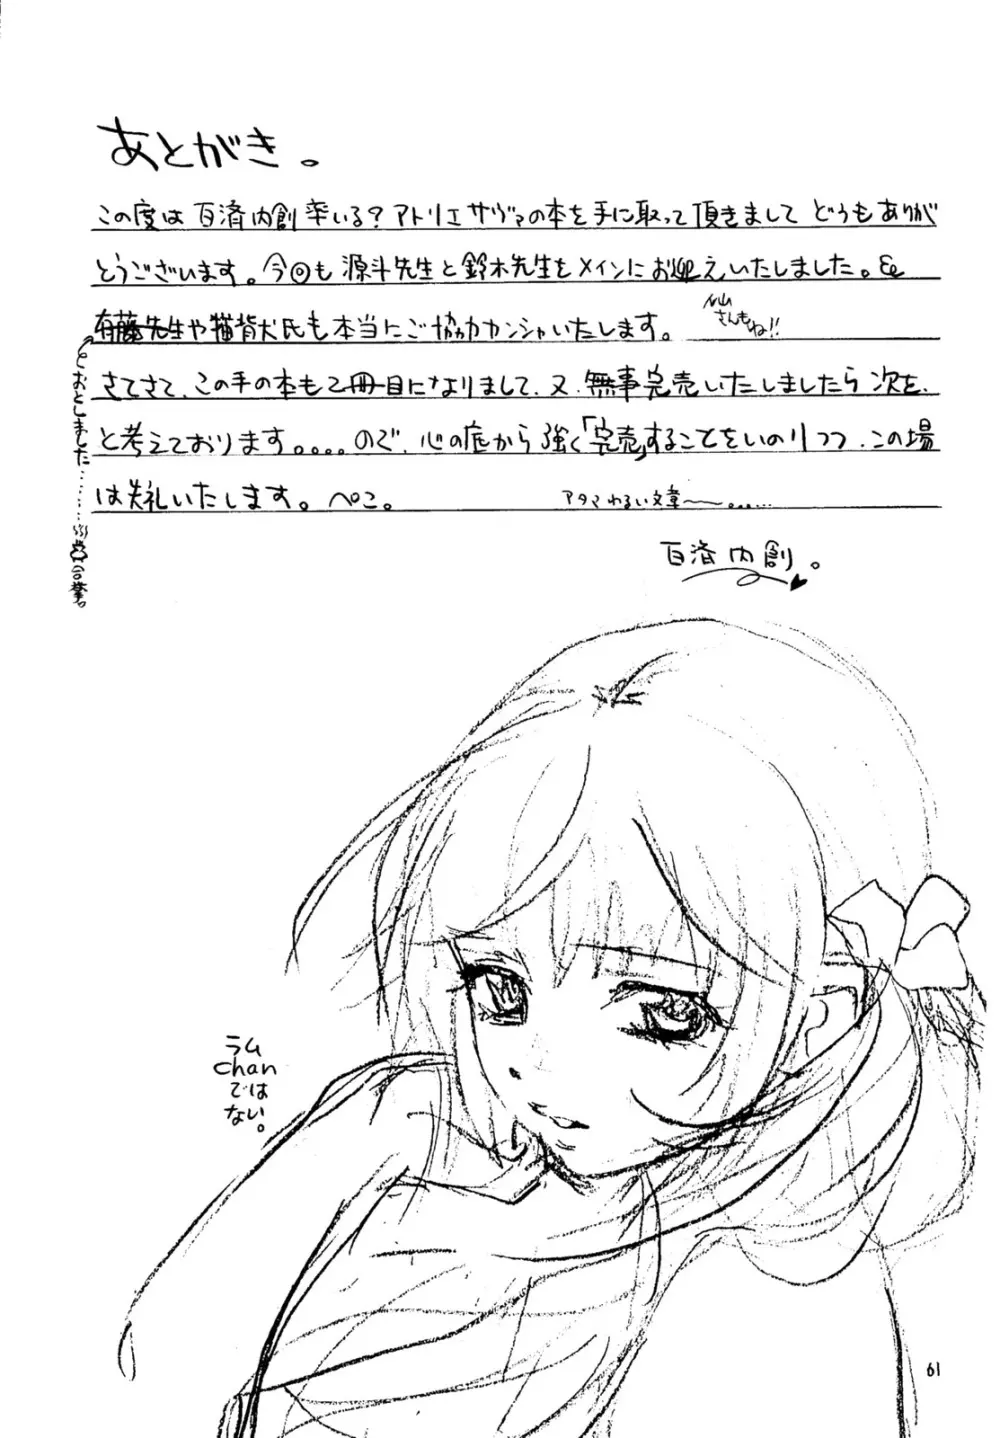 あとがき。
この度は百済内創率いる？アトリエサヴァの本を手に取って頂きまして どうもありが
とうございます。今回も源斗先生と鈴木先生をメインにお迎えいたしました。&
有藤先生や猫背犬氏も本当にご協力カンシャいたします。
仙山さんもね!!
さてさて、この手の本も2冊目になりまして、又、無事完売いたしましたら次を、
と考えております。。。。ので、心の底から強く「完売」することをいのりつつ、この場
は失礼いたします。ぺこ。
アタマわるい文章〜〜。……
百済内創。
おとしました………
合掌。
ラム
chan
では
ない。
61